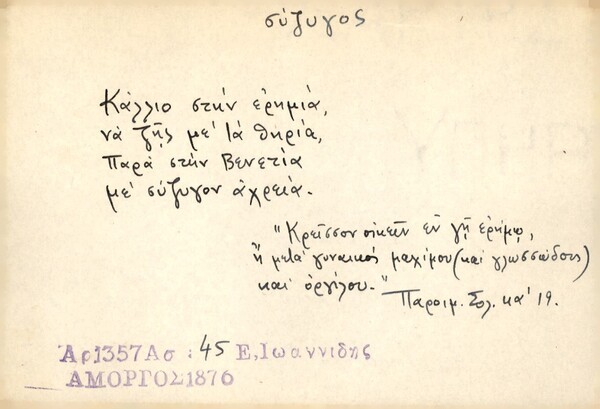 σύζυγος
Κάλλιο στήν ἐρημιά,
νά ζῇς μέ τά θηρία,
Παρά στήν Βενετία
μέ σύζυγον ἀχρεία.
"Κρεῖσσον οἰκεῖν ἐν γῇ ἐρήμῳ,
ἤ μετά γυναικός μαχίμου (καί γλωσσώδους)
καί ὀργίλου."
Παροιμ. Σολ. κα' 19.
Ἀρ1357Ασ : 45 Ε, Ιωαννιδης
ΑΜΟΡΓΟΣ1876